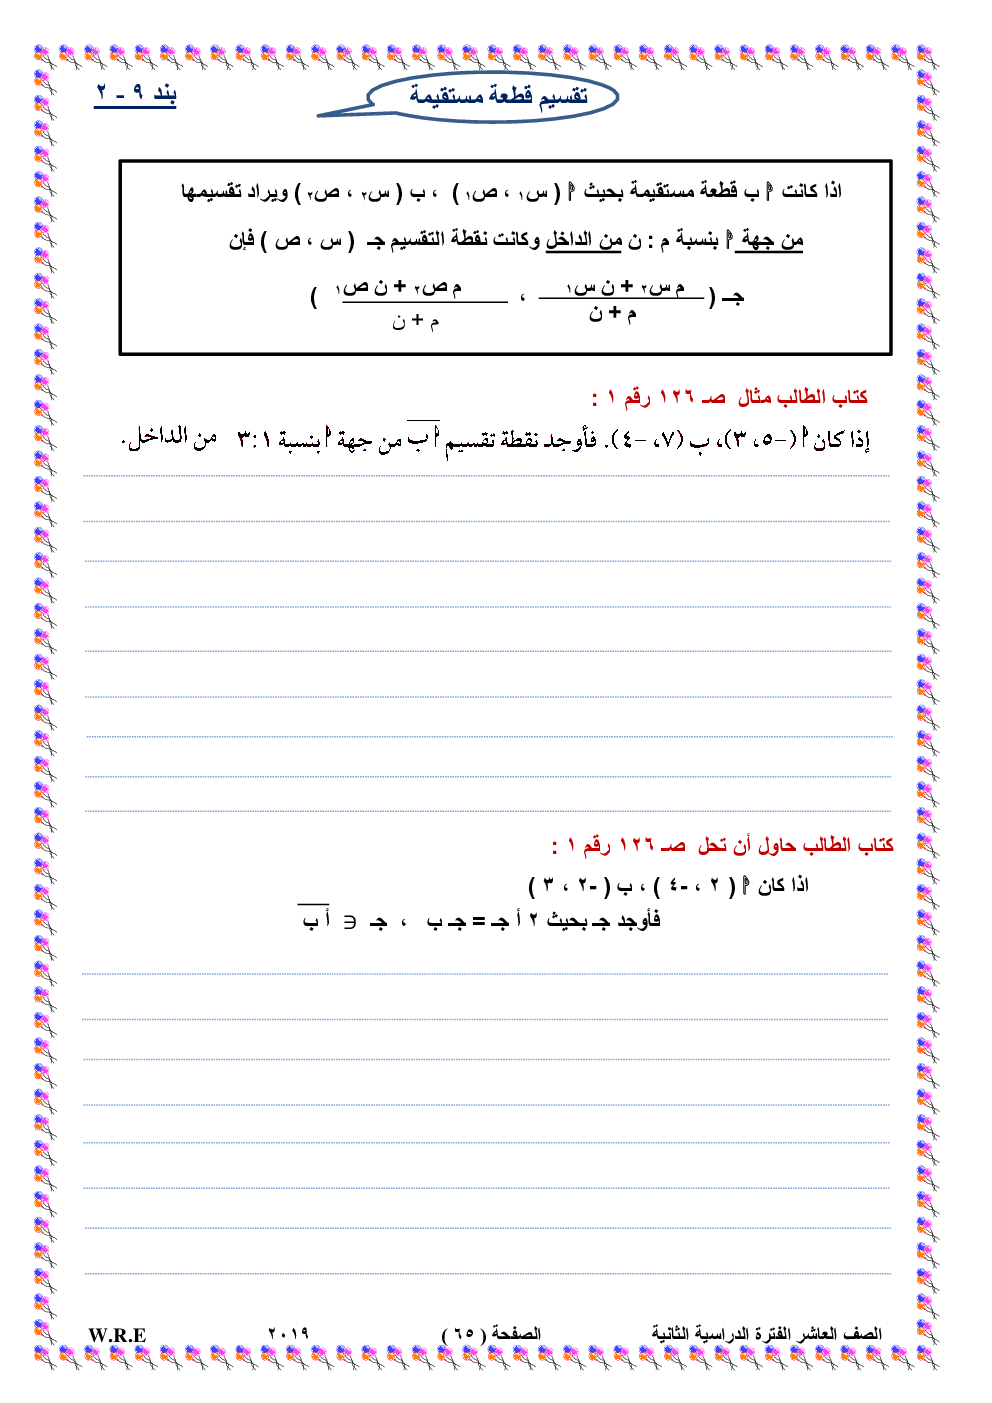 بند ٩ - ٢
تقسيم قطعة مستقيمة
اذا كانت أ ب قطعة مستقيمة بحيث أ ( س١ ، ص١ ) ، ب ( س٢ ، ص٢ ) ويراد تقسيمها
من جهة أ بنسبة م : ن من الداخل وكانت نقطة التقسيم جـ ( س ، ص ) فإن
جـ ( م س٢ + ن س١ ، م ص٢ + ن ص١ )
م + ن م + ن
كتاب الطالب مثال صـ ١٢٦ رقم ١ :
إذا كان أ (-٥، ٣)، ب (٧، -٤). فأوجد نقطة تقسيم أ ب من جهة أ بنسبة ١:٣ من الداخل.
كتاب الطالب حاول أن تحل صـ ١٢٦ رقم ١ :
اذا كان أ ( ٢ ، -٤ ) ، ب ( -٢ ، ٣ )
فأوجد جـ بحيث ٢ أ جـ = جـ ب ، جـ ∈ أ ب
الصف العاشر الفترة الدراسية الثانية الصفحة ( ٦٥ ) ٢٠١٩ W.R.E